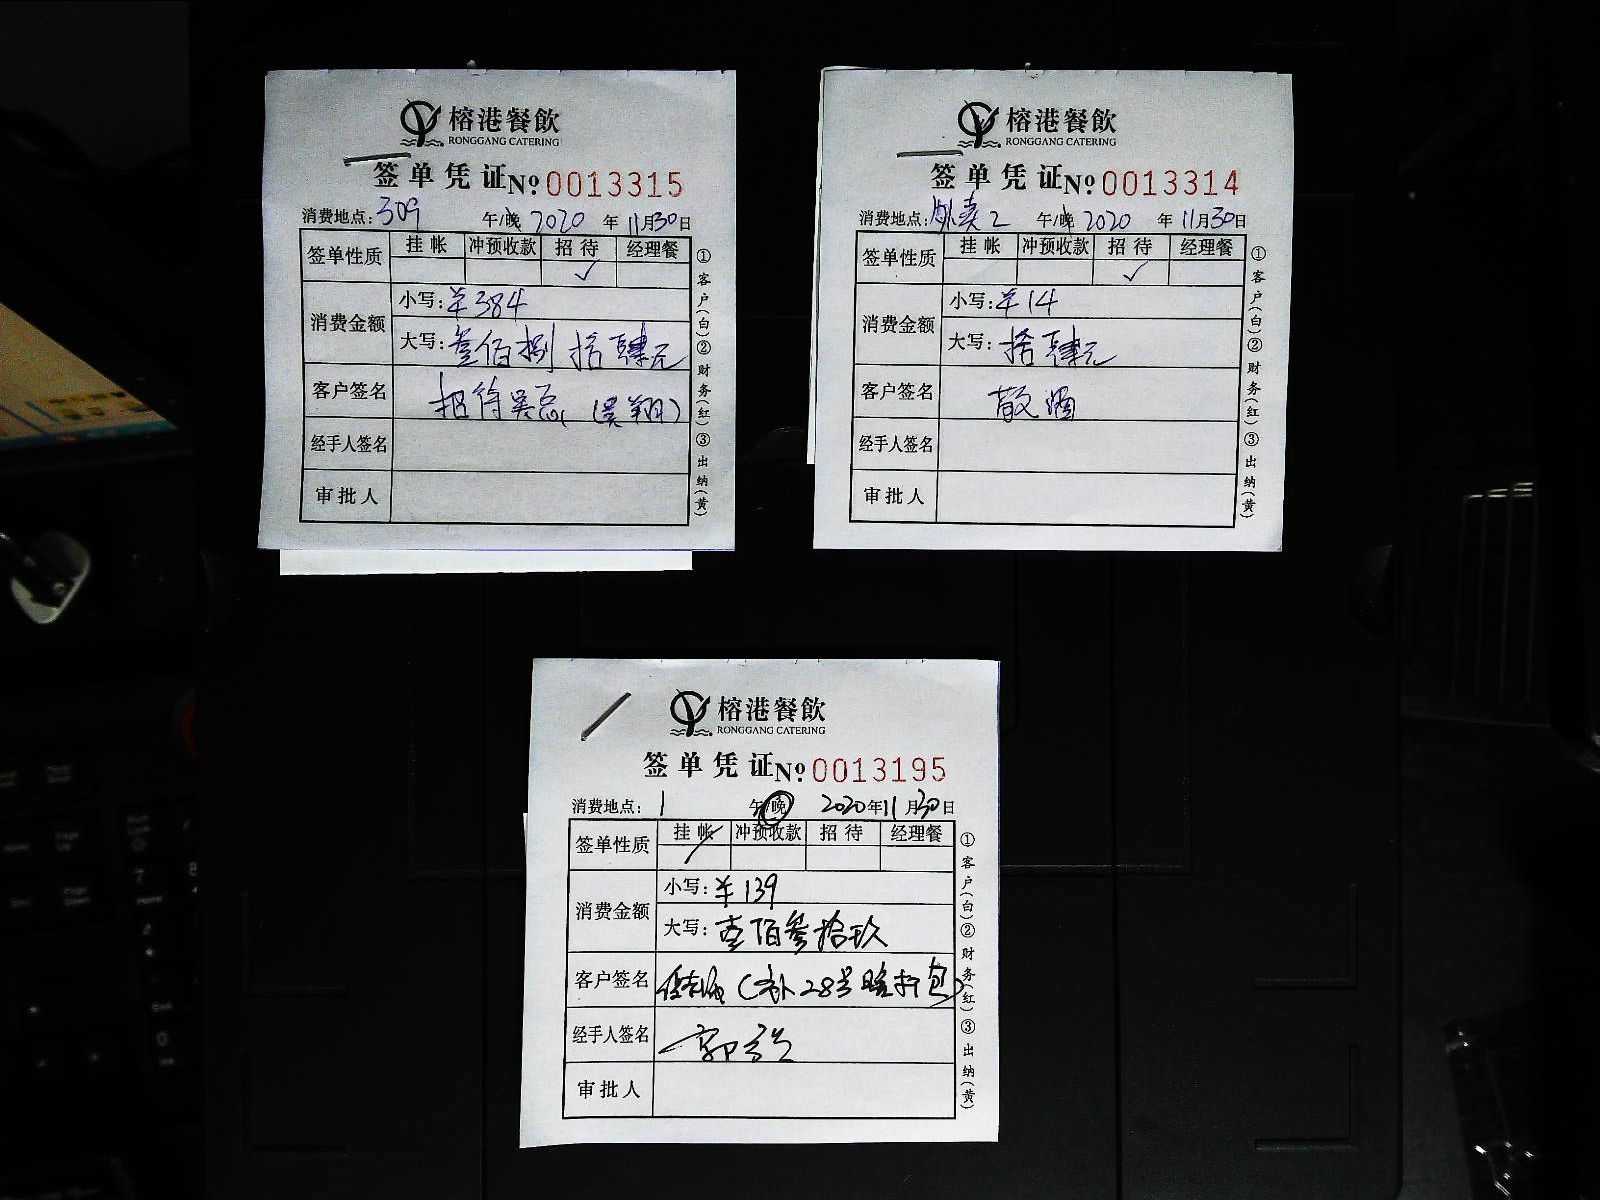 榕港餐飲
RONGGANG CATERING
签单凭证 № 0013315
消费地点: 309 午/晚 2020 年 11月30日
签单性质 挂帐 冲预收款 招待 经理餐
✓
消费金额 小写: ¥384
大写: 叁佰捌拾肆元
客户签名 招待吴总 (吴翔)
经手人签名
审批人
①客户(白)②财务(红)③出纳(黄)
榕港餐飲
RONGGANG CATERING
签单凭证 № 0013314
消费地点: 外卖2 午/晚 2020 年 11月30日
签单性质 挂帐 冲预收款 招待 经理餐
✓
消费金额 小写: ¥14
大写: 拾肆元
客户签名 散酒
经手人签名
审批人
①客户(白)②财务(红)③出纳(黄)
榕港餐飲
RONGGANG CATERING
签单凭证 № 0013195
消费地点: 1 午/晚 2020年11月30日
签单性质 挂帐 冲预收款 招待 经理餐
消费金额 小写: ¥139
大写: 壹佰叁拾玖
客户签名 (补28号晚打包)
经手人签名
审批人
①客户(白)②财务(红)③出纳(黄)